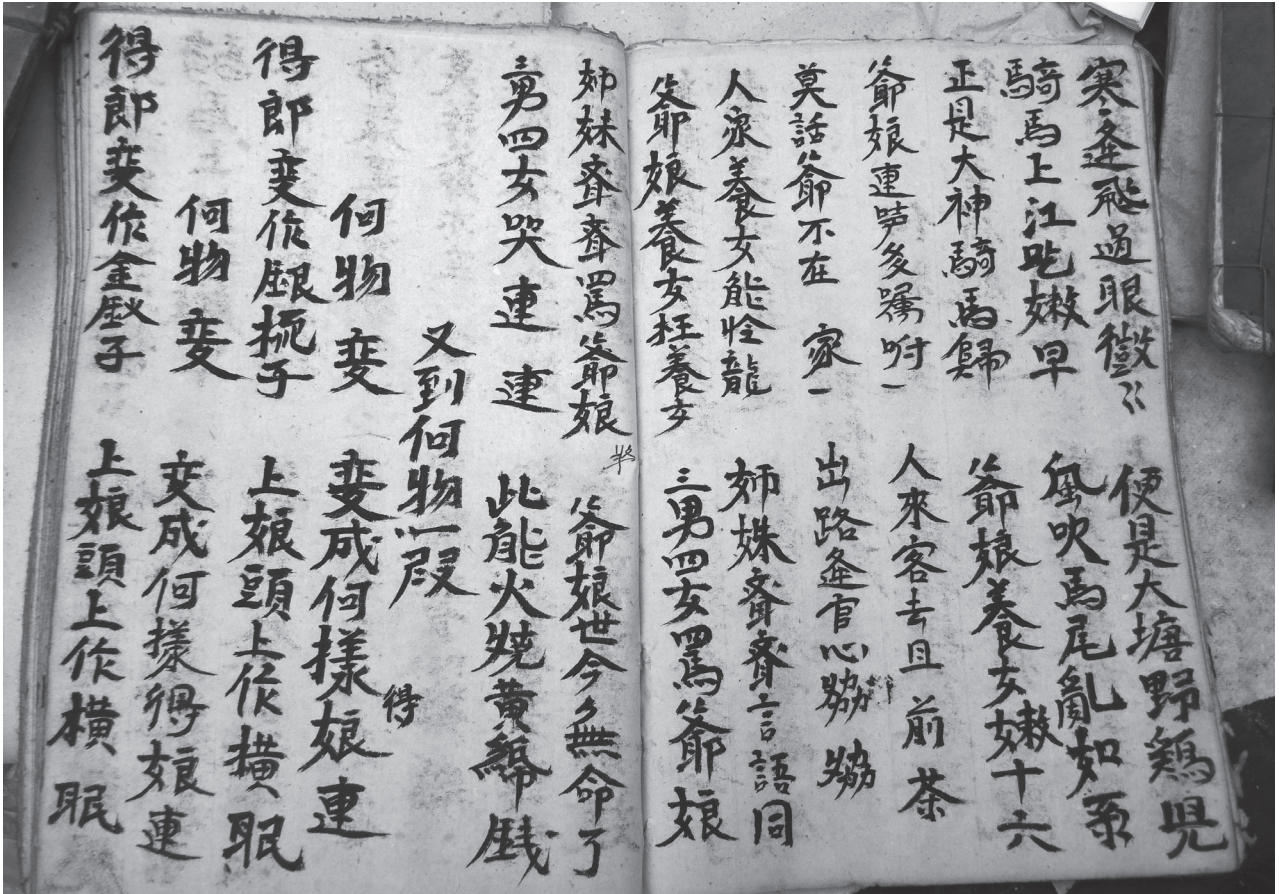 寒逢飛過眼微〻　便是大塘野鷄児
騎馬上江吃嫩早　風吹馬尾亂如系
正是大神騎馬歸　爺娘養女嫩十六
爺娘連多囑咐一　人來客去且前茶
莫話爺不在家一　出路逢官心脇脇
人衆養女能怜龍　姉妹齊齊言語同
爺娘養女枉養女　三男四女罵爺娘
姉妹齊齊罵爺娘　爺娘世今無命了
三男四女哭連連　此能火燒黃錢
又到何物一段
何物变　变成何樣得娘連
得郎变作銀梳子　上娘頭上作橫眠
何物变　变成何樣得娘連
得郎变作金釵子　上娘頭上作橫眠